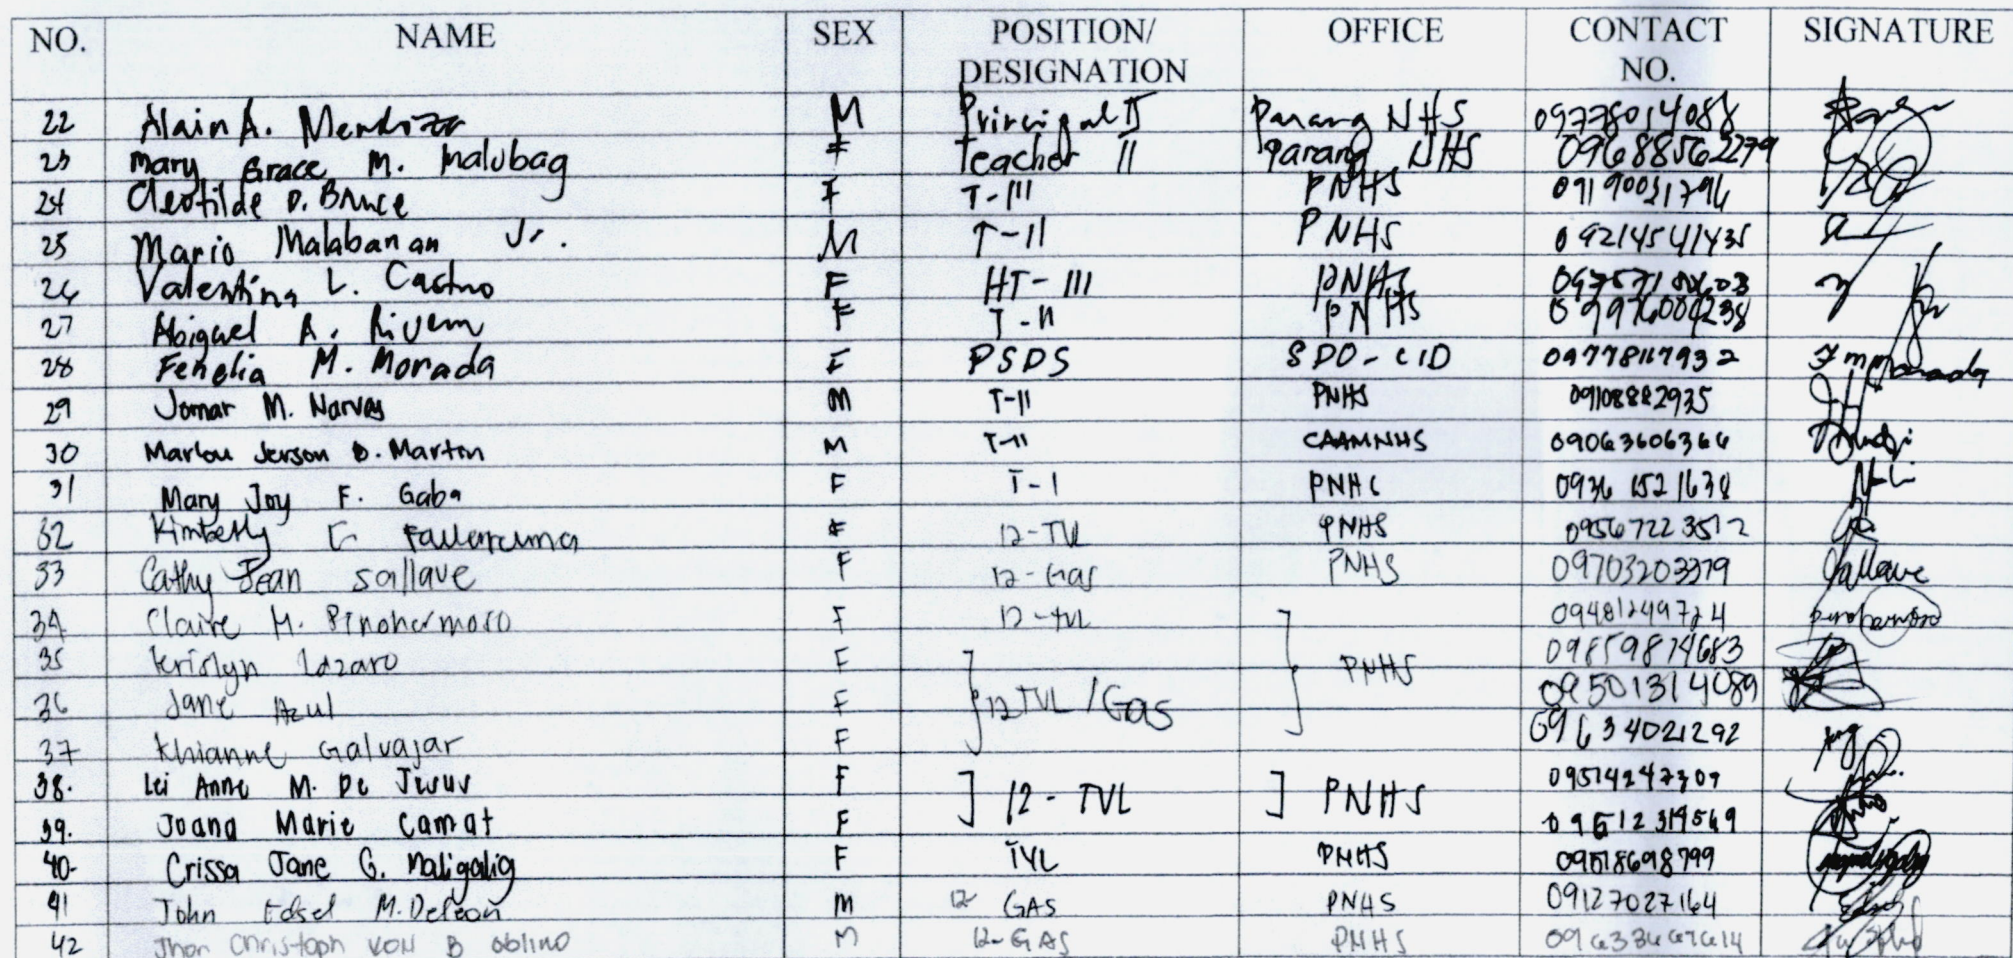 NO. NAME SEX POSITION/ DESIGNATION OFFICE CONTACT NO. SIGNATURE
22 Alain A. Mendoza M Principal II Parang NHS 09778014088
23 Mary Grace M. Malubag F Teacher II Parang NHS 09688562279
24 Cleotilde D. Bruce F T-III PNHS 09190031796
25 Mario Malabanan Jr. M T-II PNHS 09214541435
26 Valentina L. Castro F HT-III PNHS
27 Abigael A. Rivera F T-II PNHS 09976004238
28 Fenelia M. Morada F PSDS SDO-CID 09778117932
29 Jomar M. Narvas M T-II PNHS 09108882935
30 Marlou Jerson B. Martin M T-II CAAMNHS 09063606366
31 Mary Joy F. Gaba F T-I PNHS 0936 1521638
32 Kimberly F 12-TVL PNHS 09567223512
33 Cathy Jean Sallave F 12-Gas PNHS 09703203379 Sallave
34 Claire M. Binohermoso F 12-TVL 09481249724
35 Krislyn Lazaro F 09859874683
36 Jane Azul F 12 TVL/Gas PNHS 09501314089
37 Khianne Galvajar F 09634021292
38. Lei Anne M. De Jesus F 12-TVL PNHS 09514247307
39. Joana Marie Camat F 09512319569
40. Crissa Jane G. Maligalig F TVL PNHS 09518698799
41 John Edsel M. Deleon M 12 GAS PNHS 09127027164
42 Jhon Christoph Von B Oblino M 12-GAS PNHS